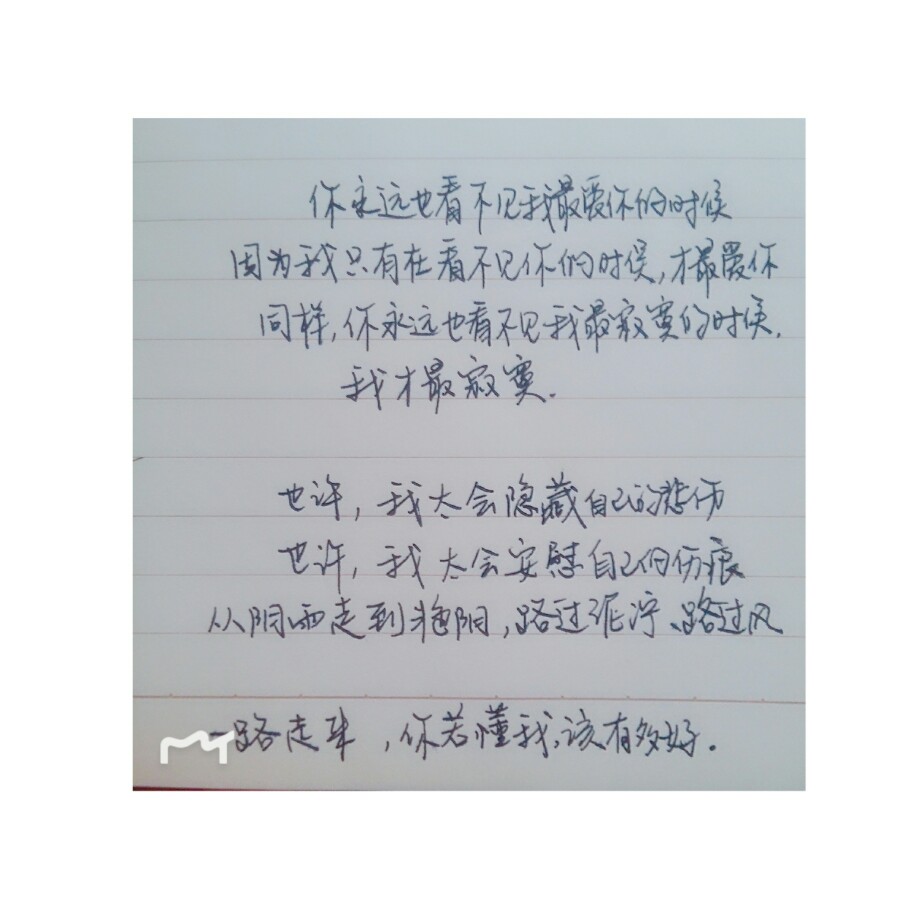 你永远也看不见我最爱你的时候
因为我只有在看不见你的时候,才最爱你
同样,你永远也看不见我最寂寞的时候.
我才最寂寞.
也许,我太会隐藏自己的悲伤
也许,我太会安慰自己的伤痕
从阴雨走到艳阳,路过泥泞、路过风
一路走来,你若懂我,该有多好.